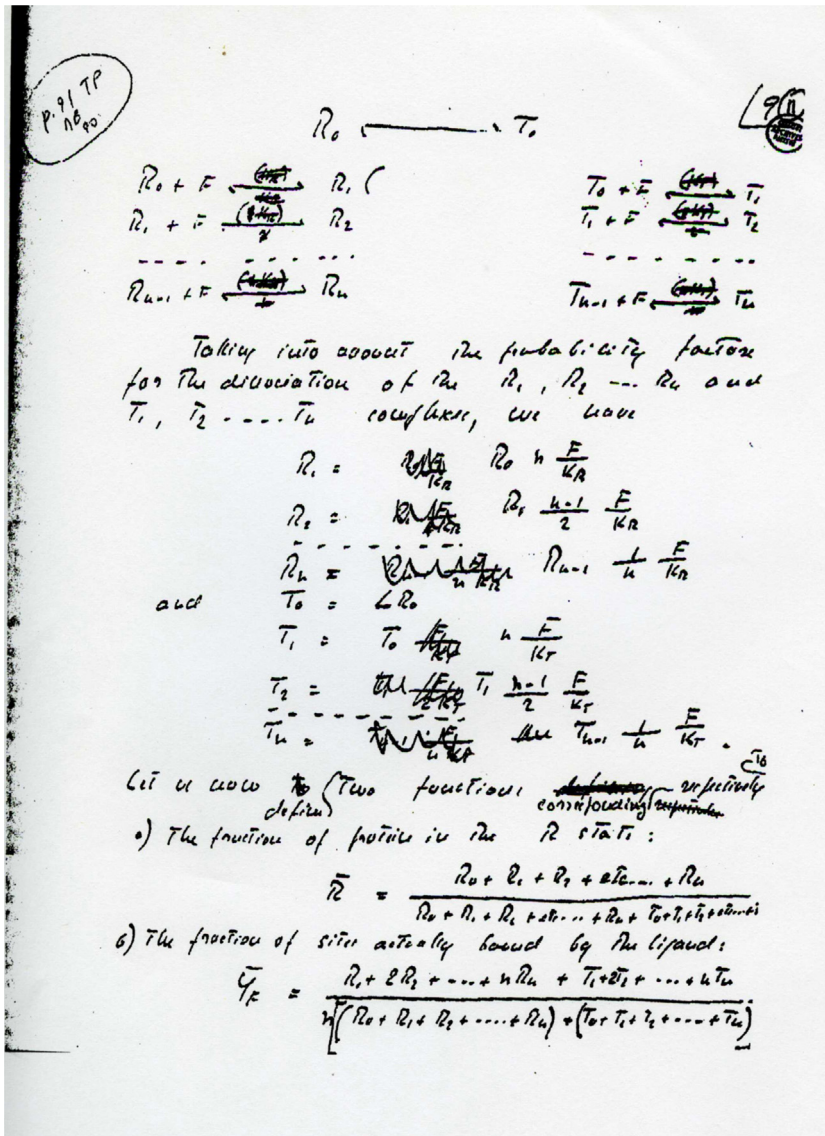 p. 91 TP
R₀ ⟷ T₀
R₀ + F ⟷ R₁ (
T₀ + F ⟷ T₁
R₁ + F ⟷ R₂
T₁ + F ⟷ T₂
---- ------
- - - - - - - -
Rₙ₋₁ + F ⟷ Rₙ
Tₙ₋₁ + F ⟷ Tₙ
Taking into account the probability factors
for the dissociation of the R₁, R₂ --- Rₙ and
T₁, T₂ ---- Tₙ complexes, we have
R₁ = R₀ n F/K_R
R₂ = R₁ (n-1)/2 F/K_R
- - - - - - - -
Rₙ = Rₙ₋₁ 1/n F/K_R
and T₀ = L R₀
T₁ = T₀ n F/K_T
T₂ = T₁ (n-1)/2 F/K_T
- - - - - - - -
Tₙ = Tₙ₋₁ 1/n F/K_T .
Let us now define two functions corresponding respectively to
a) The fraction of protein in the R state :
R̄ = (R₀ + R₁ + R₂ + etc... + Rₙ) / (R₀ + R₁ + R₂ + etc... + Rₙ + T₀+T₁+T₂+etc...+
b) The fraction of sites actually bound by the ligand :
Ȳ_F = (R₁ + 2R₂ + ... + nRₙ + T₁+2T₂ + ... + nTₙ) / n[(R₀ + R₁ + R₂ + .... + Rₙ) + (T₀+T₁+T₂+ ---- +Tₙ)]